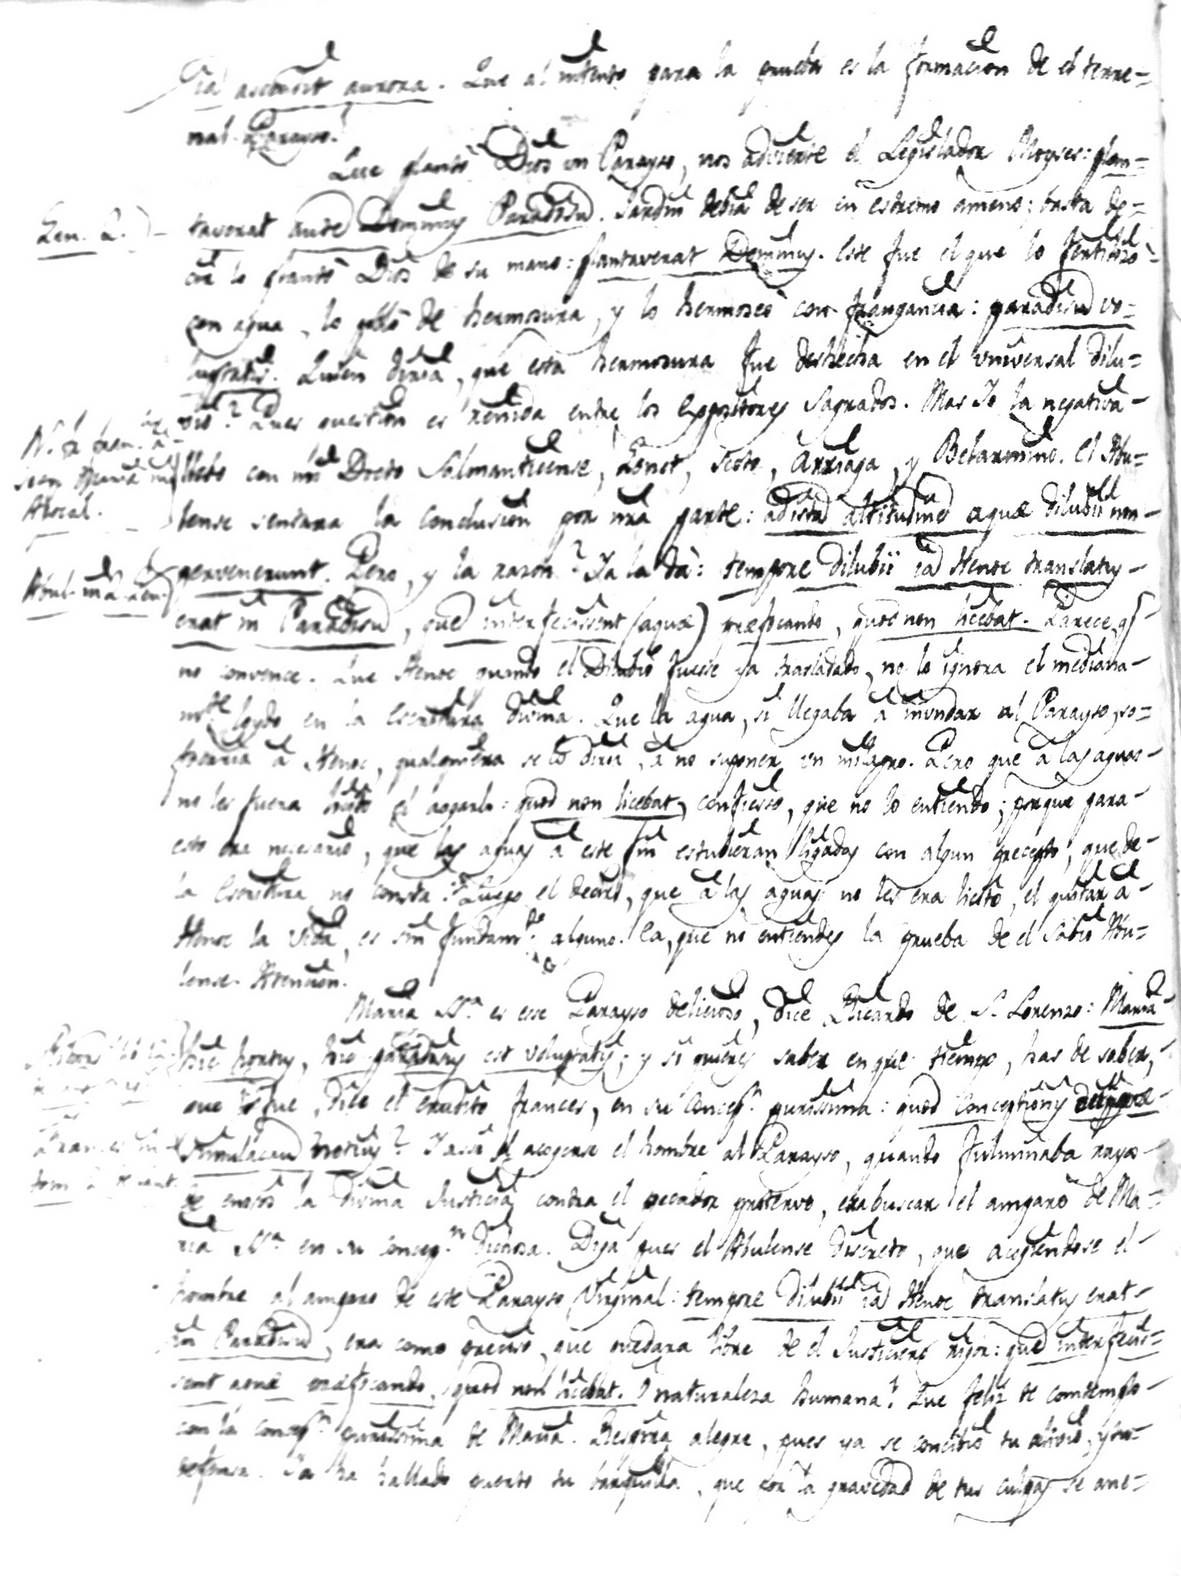 iã ascendit aurora. Que al intento para la prueba es la formacion de el terre=
nal Parayso.
Que plantò Dios un Parayso, nos advierte el Legislador Moyses: plan=
Gen. 2.) - taverat autẽ Dominus Paradisũ. Jardin debia de ser en estremo ameno; basta de=
cir lo plantò Dios de su mano: plantaverat Dominus. Este fue el que lo fertilizò
con agua, lo de hermosura, y lo hermoseò con frangancia: paradisũ vo=
luptatis. Quien diria, que esta hermosura fue deshecha en el universal dilu=
vio? Pues question es reñida entre los Expositores Sagrados. Mas Yo la negativa
llevo con mi Docto Salmanticense, Scoto, Arriaga, y Belarmino. El Abu=
lense sentara la conclusion por mia parte: ad istã altitudinẽ aquæ diluvii non
Abul. in Gen.) pervenerunt. Pero, y la razon? Ya la dà: tempore diluvii iã Henoc translatus
erat in Paradisũ, quẽ interfecissent (aquæ) præfocando, quod non licebat. Parece q
no convence. Que Henoc quando el Diluvio fuesse ya trasladado, no lo ignora el mediana
mte leydo en la Escritura divina. Que la agua, si llegaba à inundar al Parayso, so=
focaria à Henoc, qualquiera se lo diria, à no suponer un milagro. Pero que à las aguas
no les fuera licito el aogarlo: quod non licebat, confiesso, que no lo entiendo; porque para
esto era necesario, que las aguas à este fin estubieran ligadas con algun precepto, que de
la Escritura no consta: Luego el decir, que à las aguas no les era licito, el quitar à
Henoc la vida, es sin fundamto alguno. Ea, que no entiendes la prueba de el Sabio Abu=
lense. Atencion.
Maria Sra es ese Parayso delicioso, dice Ricardo de S. Lorenzo: Maria
hic hortus, hic paradisus est voluptatis; y si quieres saber en que tiempo, has de saber,
que fue, dice el erudito frances, en su Concepn purissima: quod Conceptionis
Immaculatã? Y assi el acogerse el hombre al Parayso, quando fulminaba rayos
de enojos la Divina Justicia contra el pecador protervo, era buscar el amparo de Ma=
ria Sra en su Concepn dichosa. Diga pues el Abulense discreto, que acogiendose el
hombre al amparo de este Parayso Virginal: tempore diluvii iã Henoc translatus erat
in Paradisũ, era como preciso, que quedara libre de el Justiciero rigor: quẽ interfecis=
sent aquæ præfocando, quod non licebat. O naturaleza humana! Que feliz te contemplo
con la concepn purissima de Maria. Respira alegre, pues ya se concibio tu alivio, y tu
defensa. Ya ha hallado puerto tu barquilla, que con la gravedad de tus culpas se ane=